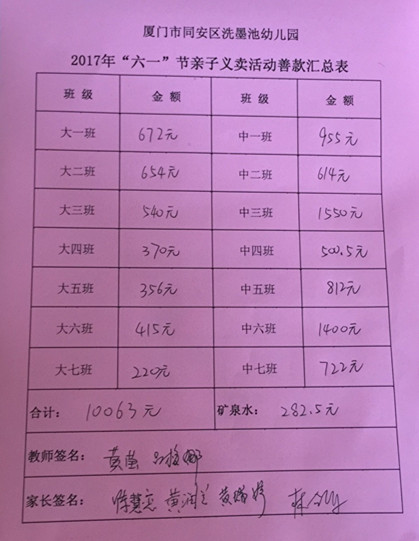 厦门市同安区洗墨池幼儿园
2017年“六一”节亲子义卖活动善款汇总表
班 级 金 额 班 级 金 额
大一班 672元 中一班 955元
大二班 654元 中二班 614元
大三班 540元 中三班 1550元
大四班 370元 中四班 500.5元
大五班 356元 中五班 812元
大六班 415元 中六班 1400元
大七班 220元 中七班 722元
合计： 10063元 矿泉水： 282.5元
教师签名： 黄莹
家长签名：